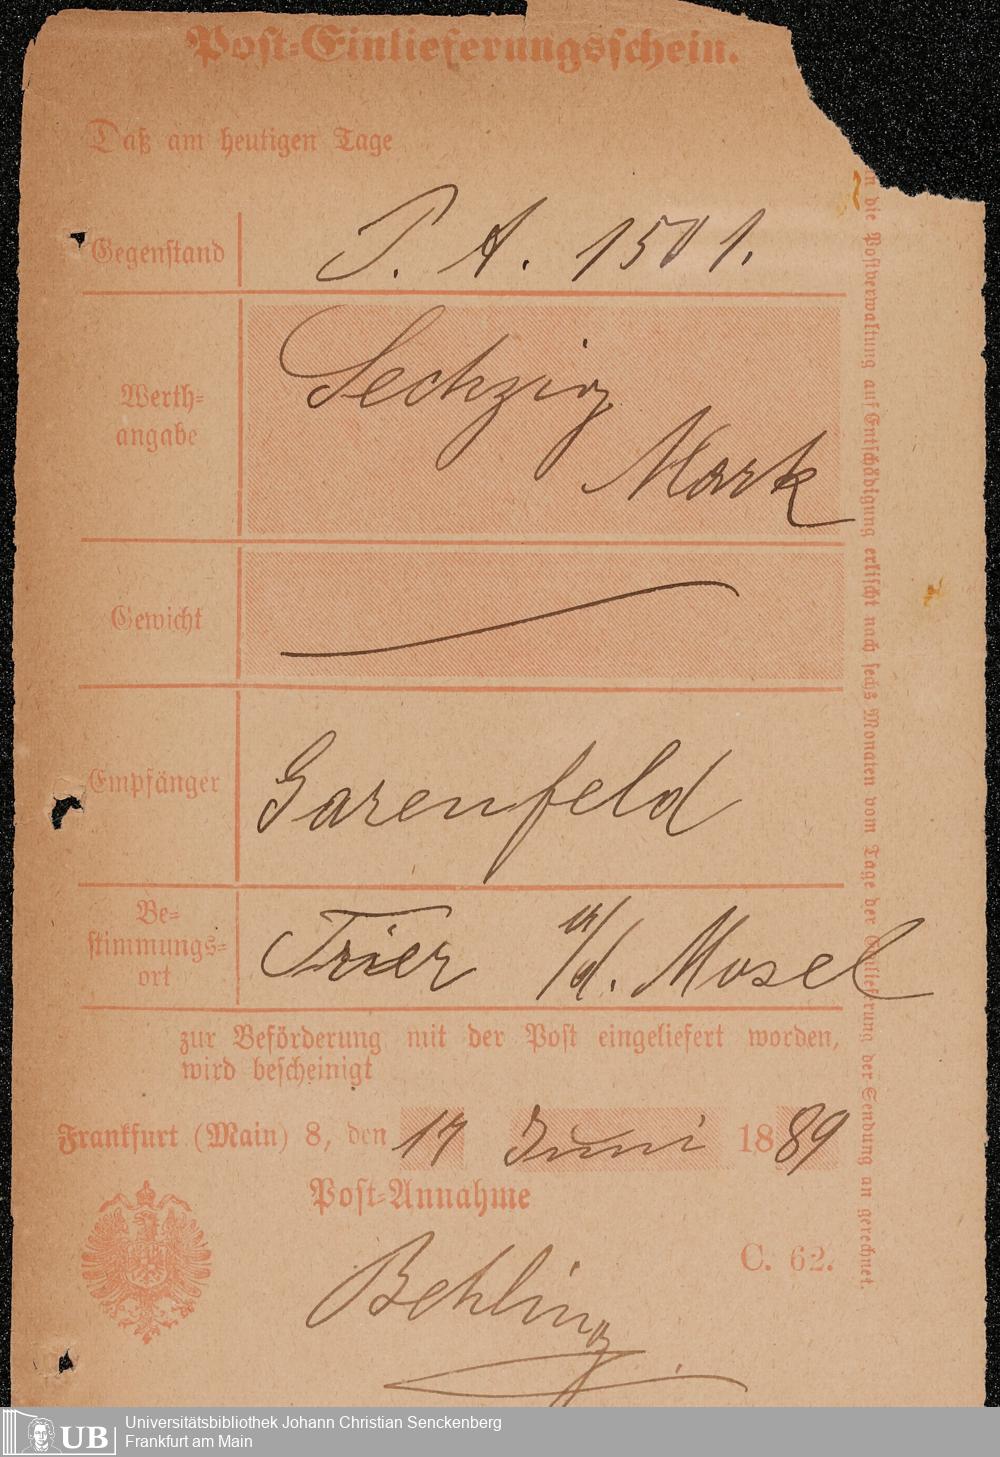 Post-Einlieferungsschein.
Daß am heutigen Tage
Gegenstand
P. A. 1501.
Werth-
angabe
Sechzig
Mark
Gewicht
Empfänger
Garenfeld
Be-
stimmungs-
ort
Trier a/d. Mosel
zur Beförderung mit der Post eingeliefert worden,
wird bescheinigt
Frankfurt (Main) 8, den 17 Juni 1889
Post-Annahme
C. 62.
Behling
die Postverwaltung auf Entschädigung erlischt nach sechs Monaten vom Tage der Einlieferung der Sendung an gerechnet.
UB
Universitätsbibliothek Johann Christian Senckenberg
Frankfurt am Main